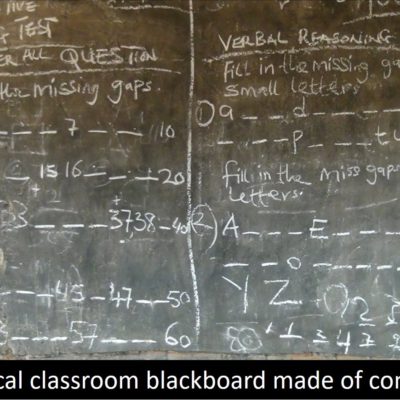 TIVE
TEST
ER ALL QUESTION
the missing gaps.
_ _ _ 7 _ _ 10
_ 15 16 _ _ _ 20
33 _ _ _ 37,38 _ 40
_ _ _ 45 _ 47 _ _ 50
_ _ _ 57 _ _ 60
VERBAL REASONING
Fill in the missing ga
small letters
1) a _ _ d _ _ _
_ _ _ p _ _ _ t u
fill in the miss gaps
letters.
2) A _ _ _ E _ _ _
_ _ o _ _ _ _
Y Z.
cal classroom blackboard made of con